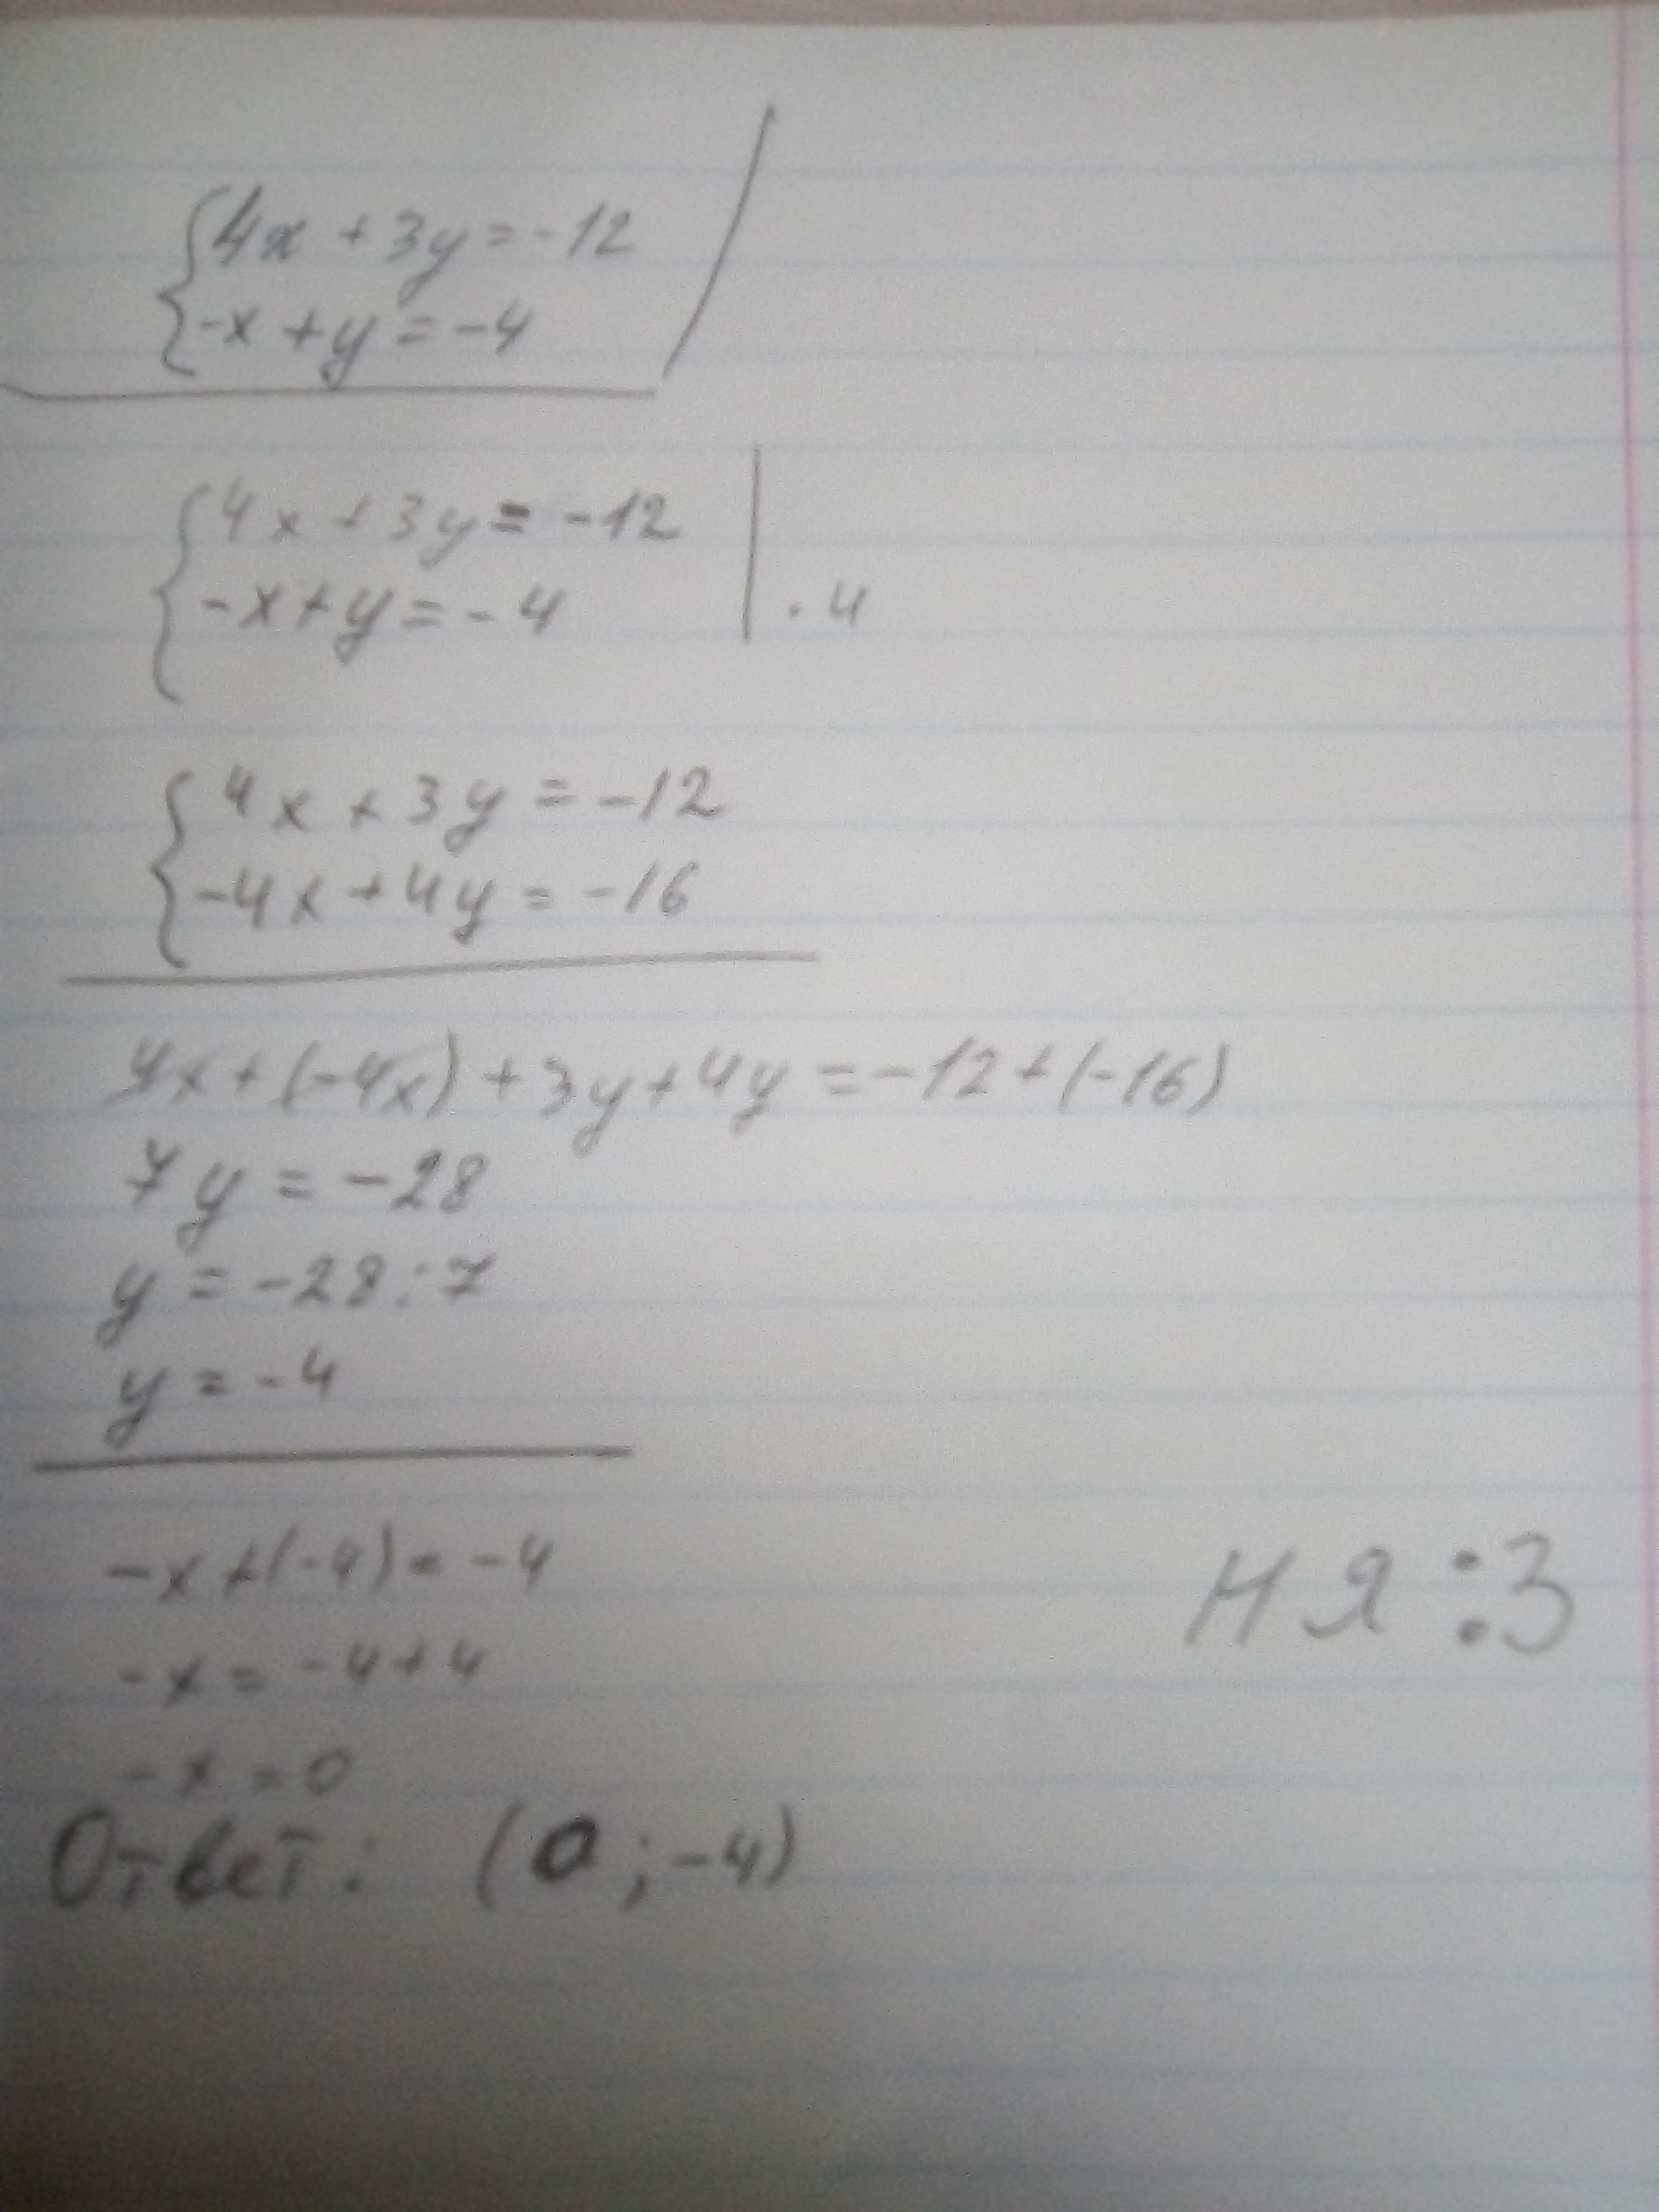 4x + 3y = -12
-x + y = -4
4x + 3y = -12
-x + y = -4 | · 4
4x + 3y = -12
-4x + 4y = -16
4x + (-4x) + 3y + 4y = -12 + (-16)
7y = -28
y = -28 : 7
y = -4
-x + (-4) = -4
-x = -4 + 4
-x = 0
Ответ: (0 ; -4)
Ня :3